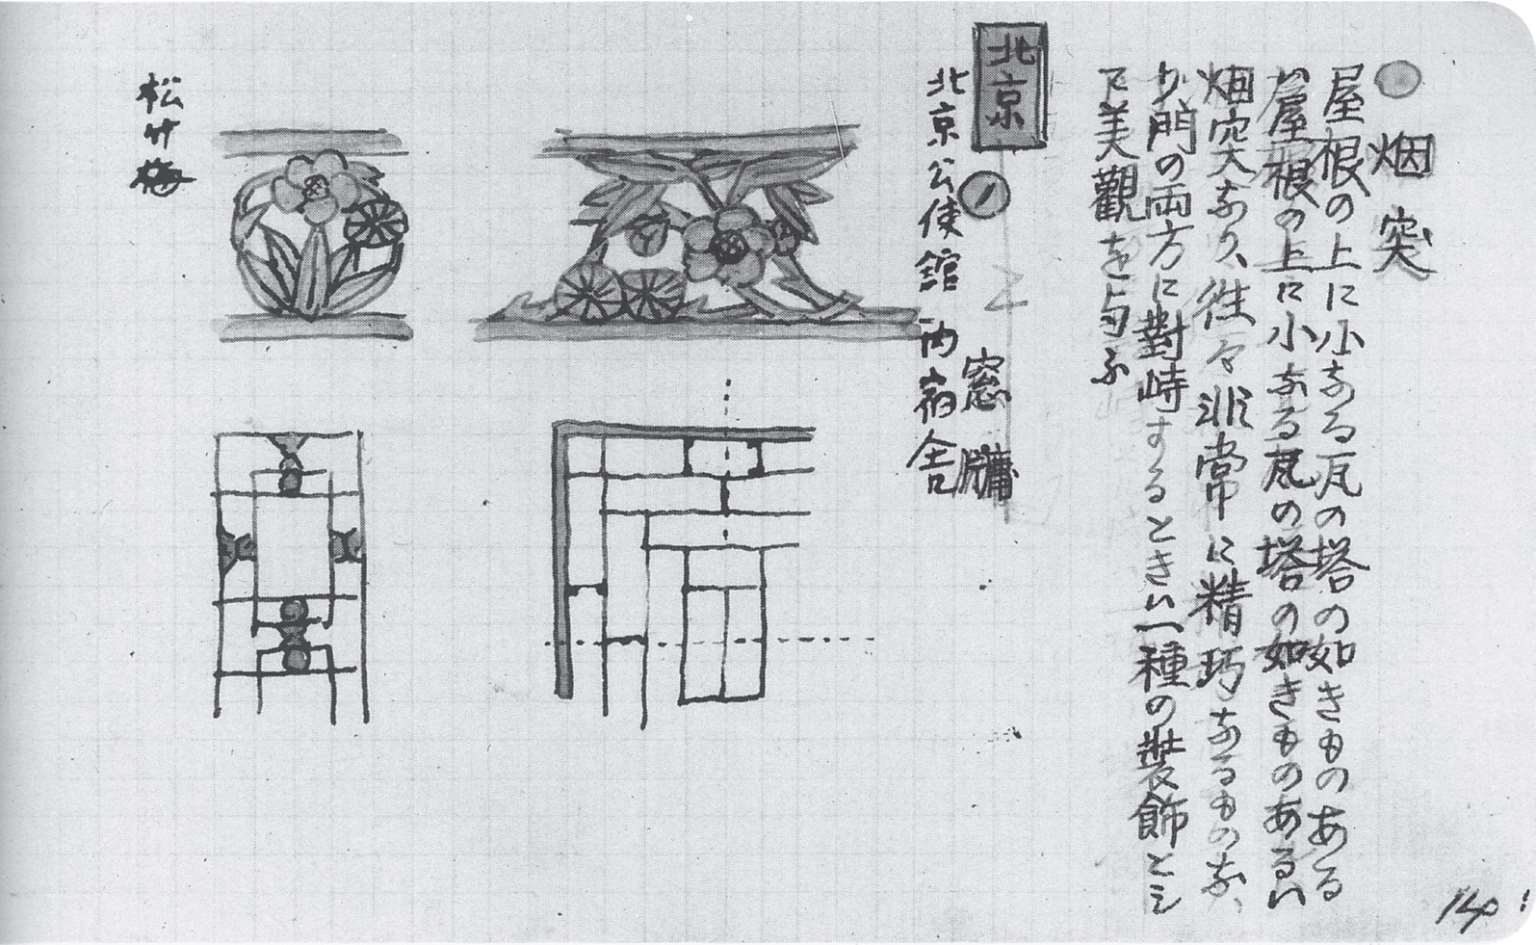 烟突
屋根の上に小なる瓦の塔の如きものある
ハ屋根の上に小なる瓦の塔の如きものあるハ
烟突なり、往々非常に精巧なるものあ、
り門の両方に對峙するときハ一種の裝飾とし
て美觀を与ふ
北京
1
窓牖
北京公使館内宿舎
松竹梅
140